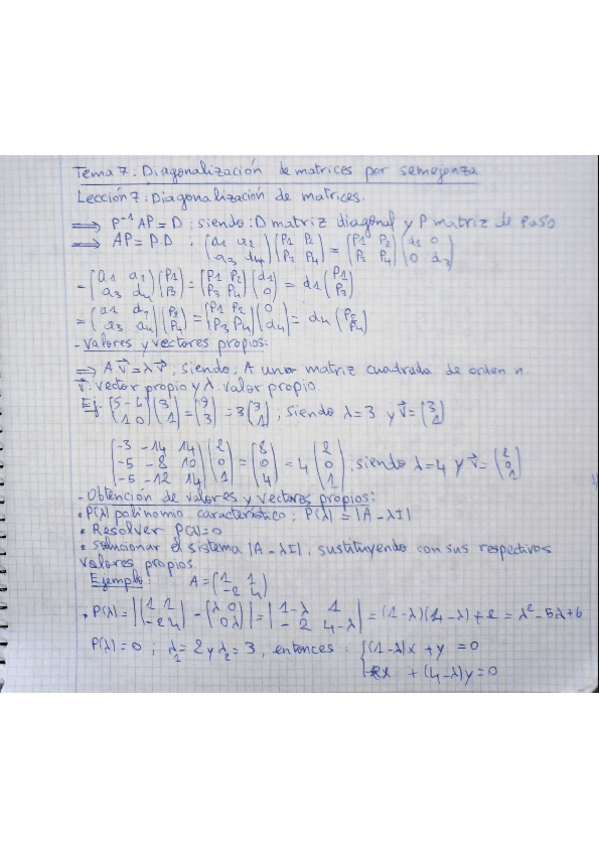 Tema 7: Diagonalización de matrices por semejanza
Lección 7: Diagonalización de matrices.
⟹ P⁻¹AP = D ; siendo: D matriz diagonal y P matriz de paso
⟹ AP = P.D ; (a1 a2 / a3 a4)(P1 P2 / P3 P4) = (P1 P2 / P3 P4)(d1 0 / 0 d2)
= (a1 a2 / a3 a4)(P1 / P3) = (P1 P2 / P3 P4)(d1 / 0) = d1 (P1 / P3)
= (a1 a2 / a3 a4)(P2 / P4) = (P1 P2 / P3 P4)(0 / d4) = d4 (P2 / P4)
- Valores y vectores propios:
⟹ A v⃗ = λ v⃗ ; siendo: A una matriz cuadrada de orden n.
v⃗: vector propio y λ: valor propio.
Ej: (5 -6 / 1 0)(3 / 1) = (9 / 3) = 3 (3 / 1), siendo λ=3 y v⃗ = (3 / 1)
(-3 -14 14 / -5 -8 10 / -5 -12 14)(2 / 0 / 1) = (8 / 0 / 4) = 4 (2 / 0 / 1), siendo λ=4 y v⃗ = (2 / 0 / 1)
- Obtención de valores y vectores propios:
• P(λ) polinomio característico; P(λ) = |A - λI|
• Resolver P(λ)=0
• solucionar el sistema |A - λI|, sustituyendo con sus respectivos
valores propios.
Ejemplo: A = (1 1 / -2 4)
• P(λ) = |(1 1 / -2 4) - (λ 0 / 0 λ)| = |1-λ 1 / -2 4-λ| = (1-λ)(4-λ)+2 = λ²-5λ+6
P(λ)=0 ; λ1 = 2 y λ2 = 3, entonces: {(1-λ)x + y = 0
-2x + (4-λ)y = 0